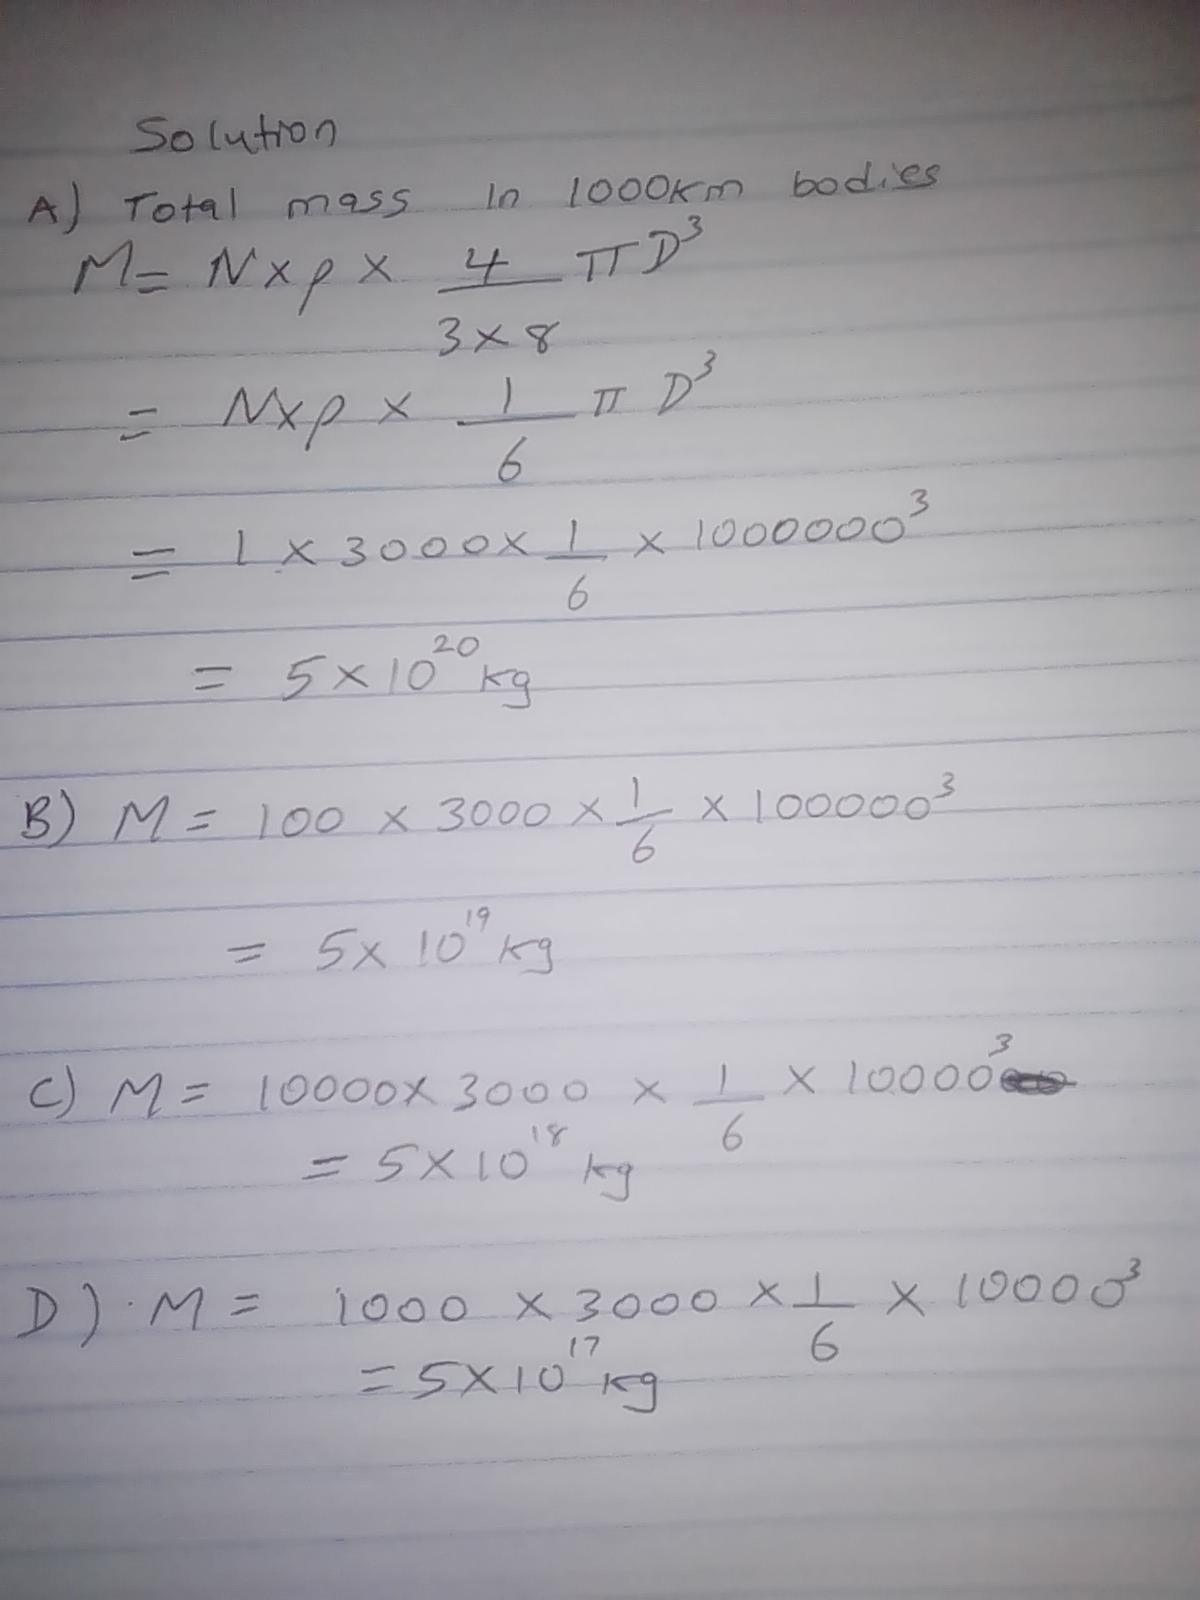 Solution
A) Total mass in 1000km bodies
M = N x ρ x 4/(3 x 8) π D³
= N x ρ x 1/6 π D³
= 1 x 3000 x 1/6 x 1000000³
= 5 x 10²⁰ kg
B) M = 100 x 3000 x 1/6 x 100000³
= 5 x 10¹⁹ kg
C) M = 10000 x 3000 x 1/6 x 10000³
= 5 x 10¹⁸ kg
D) M = 1000 x 3000 x 1/6 x 10000³
= 5 x 10¹⁷ kg